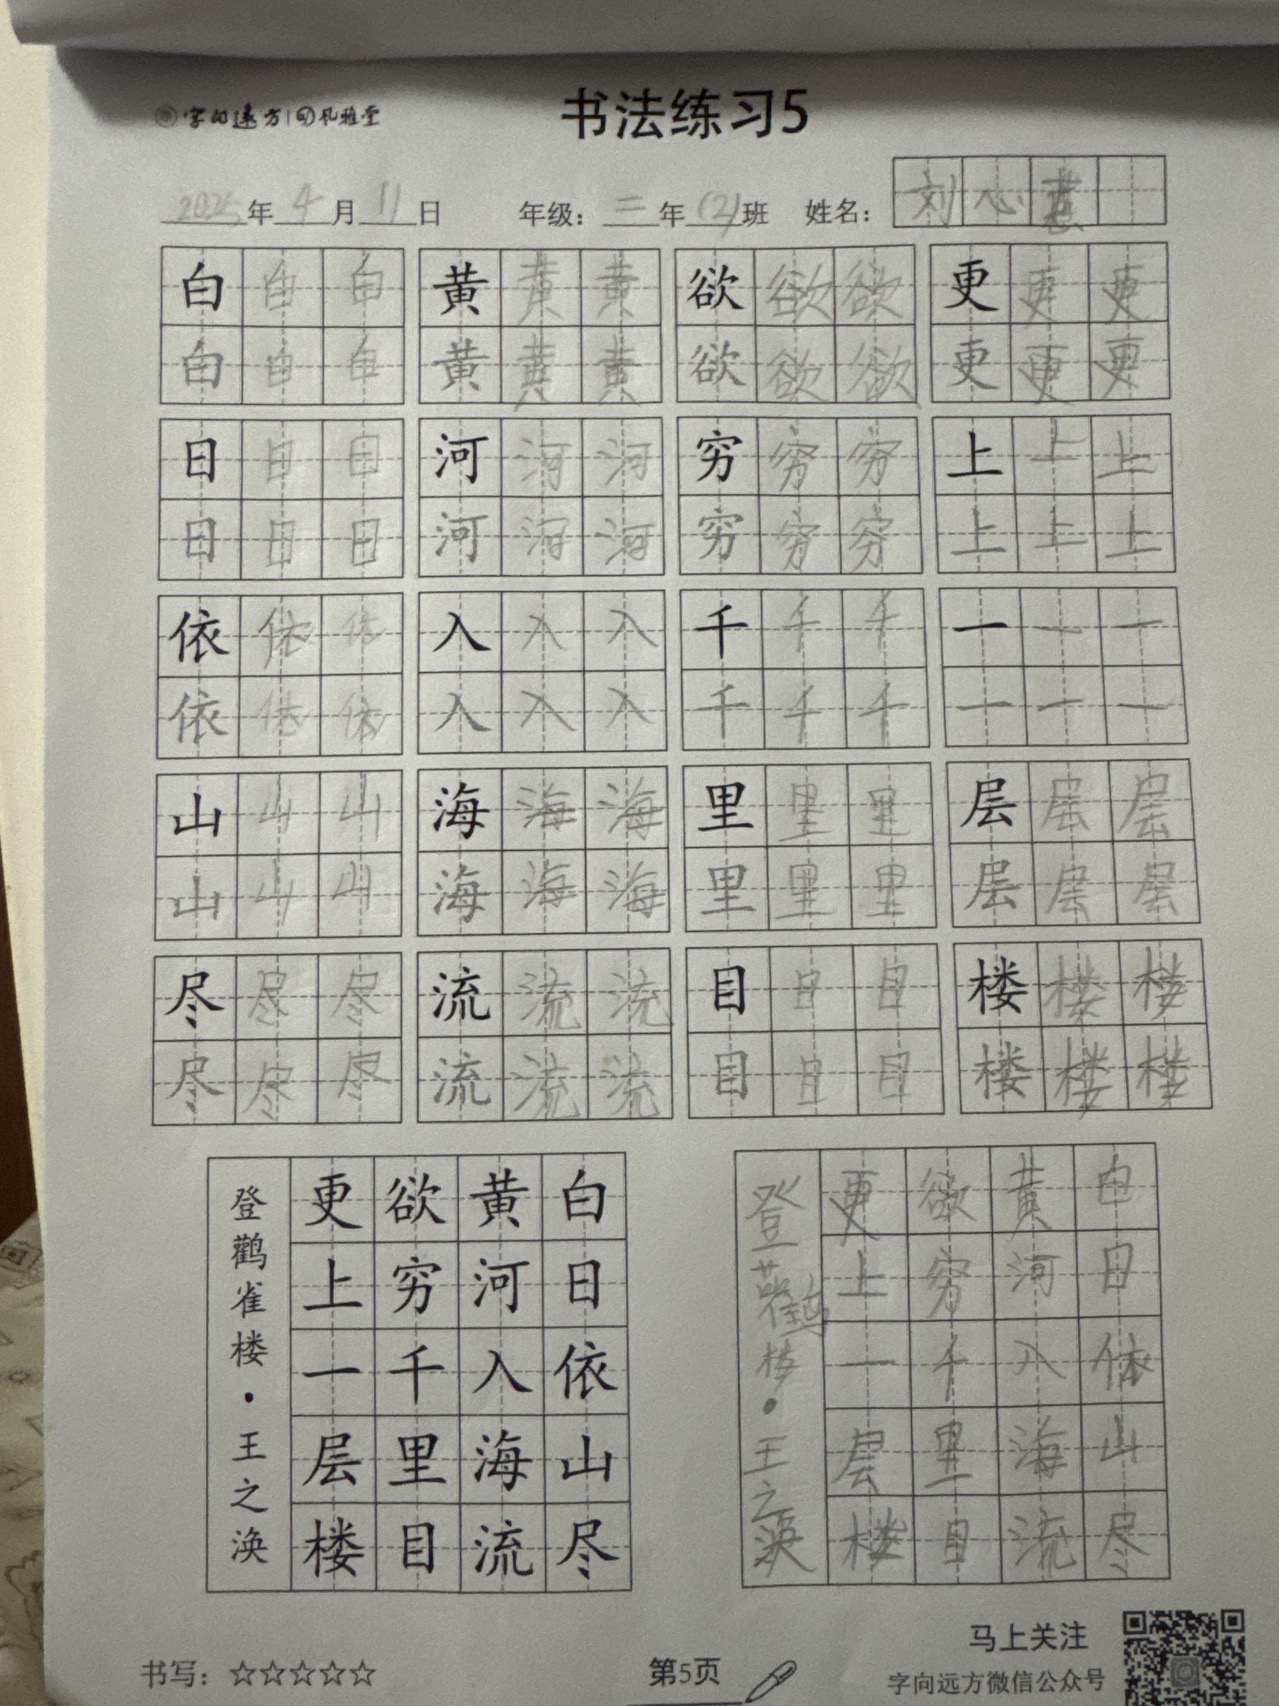 字向远方 风雅堂
书法练习5
2025年4月11日 年级：二年(2)班 姓名：刘心慧
白白白 黄黄黄 欲欲欲 更更更
白白白 黄黄黄 欲欲欲 更更更
日日日 河河河 穷穷穷 上上上
日日日 河河河 穷穷穷 上上上
依依依 入入入 千千千 一一一
依依依 入入入 千千千 一一一
山山山 海海海 里里里 层层层
山山山 海海海 里里里 层层层
尽尽尽 流流流 目目目 楼楼楼
尽尽尽 流流流 目目目 楼楼楼
白日依山尽
黄河入海流
欲穷千里目
更上一层楼
登鹳雀楼·王之涣
白日依山尽
黄河入海流
欲穷千里目
更上一层楼
登楼·王之涣
书写：☆☆☆☆☆
第5页
马上关注
字向远方微信公众号